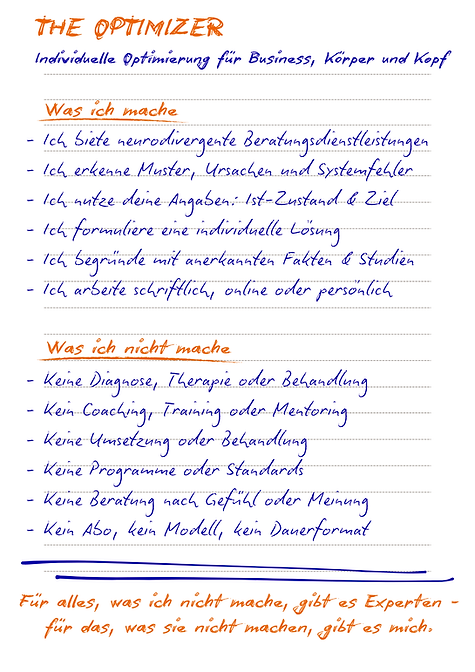 THE OPTIMIZER
Individuelle Optimierung für Business, Körper und Kopf
Was ich mache
- Ich biete neurodivergente Beratungsdienstleistungen
- Ich erkenne Muster, Ursachen und Systemfehler
- Ich nutze deine Angaben: Ist-Zustand & Ziel
- Ich formuliere eine individuelle Lösung
- Ich begründe mit anerkannten Fakten & Studien
- Ich arbeite schriftlich, online oder persönlich
Was ich nicht mache
- Keine Diagnose, Therapie oder Behandlung
- Kein Coaching, Training oder Mentoring
- Keine Umsetzung oder Behandlung
- Keine Programme oder Standards
- Keine Beratung nach Gefühl oder Meinung
- Kein Abo, kein Modell, kein Dauerformat
Für alles, was ich nicht mache, gibt es Experten -
für das, was sie nicht machen, gibt es mich.